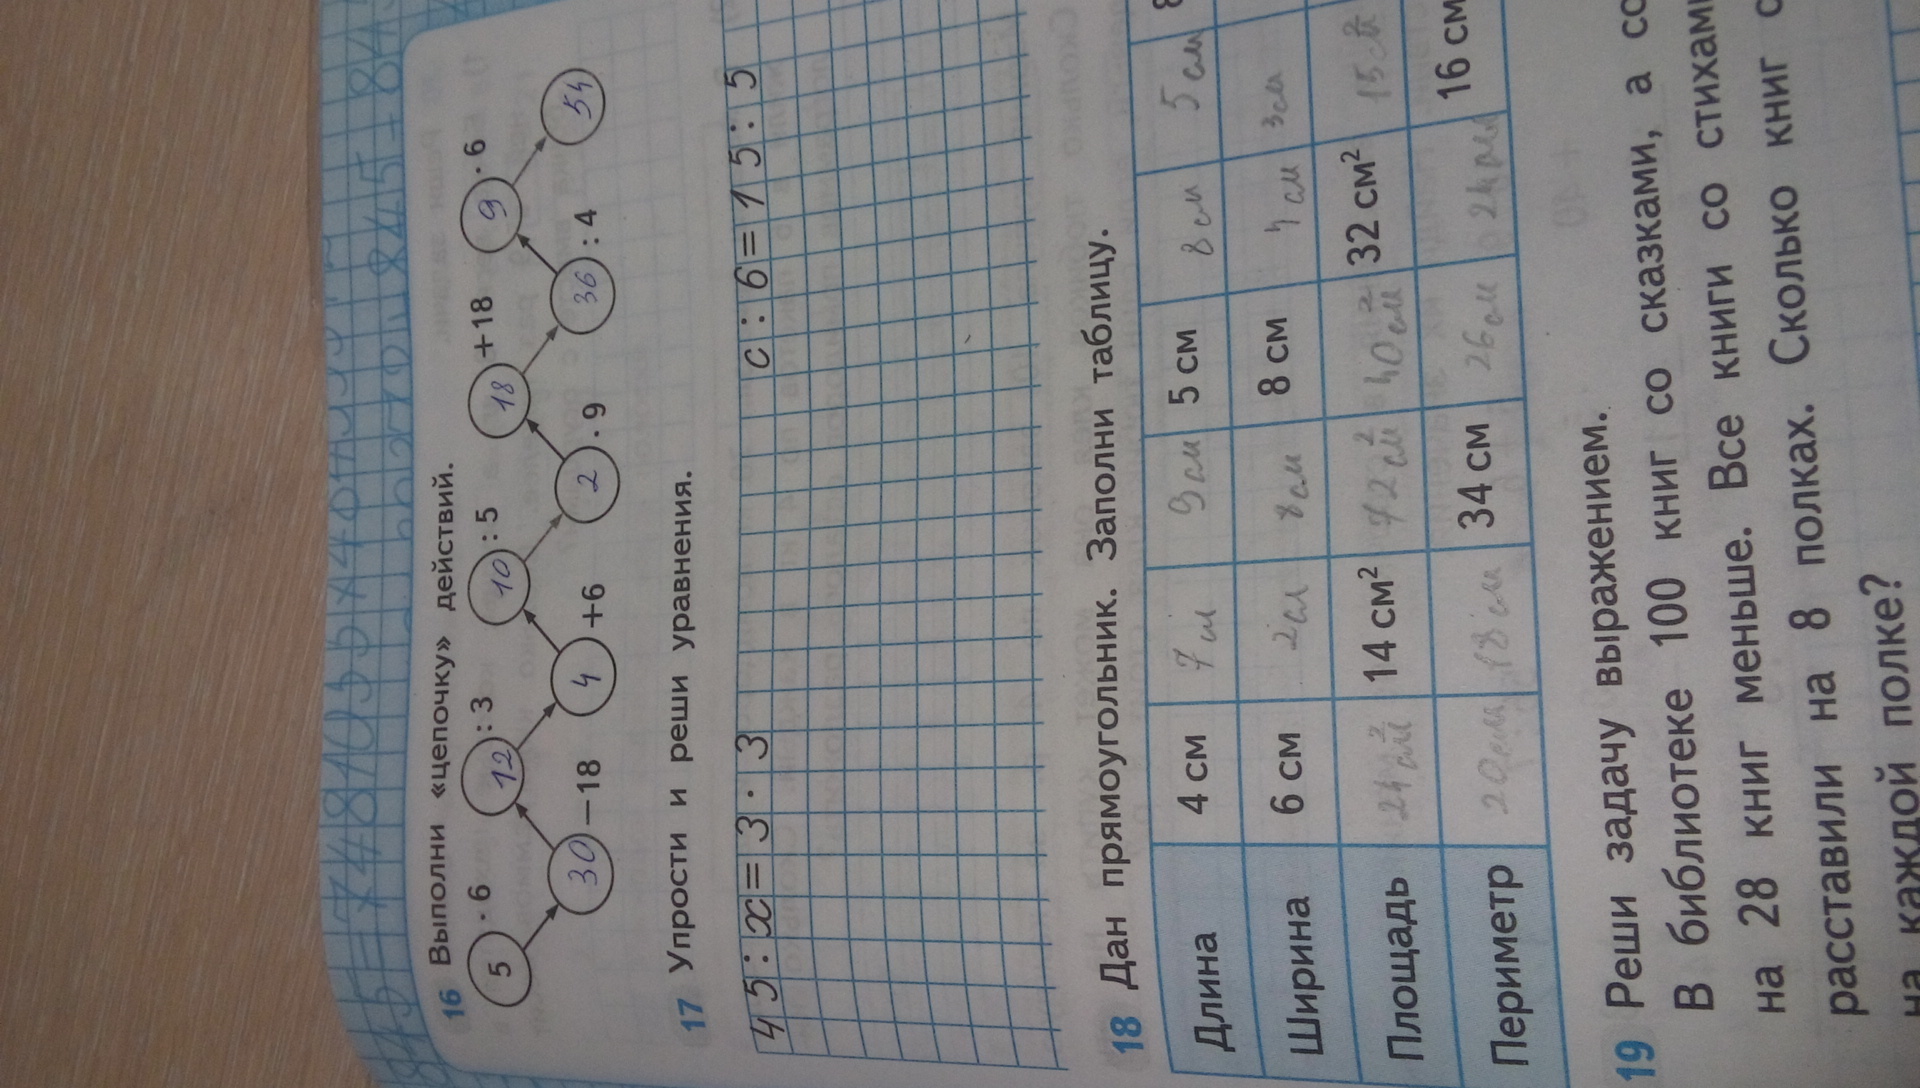 16 Выполни «цепочку» действий.
5 · 6 12 : 3 10 : 5 18 + 18 9 · 6
30 − 18 4 + 6 2 · 9 36 : 4 54
17 Упрости и реши уравнения.
45 : x = 3 · 3 c : 6 = 15 : 5
18 Дан прямоугольник. Заполни таблицу.
Длина 4 см 7 см 9 см 5 см 8 см 5 см 8
Ширина 6 см 2 см 8 см 8 см 4 см 3 см
Площадь 24 см² 14 см² 72 см² 40 см² 32 см² 15 см²
Периметр 20 см 18 см 34 см 26 см 24 см 16 см
19 Реши задачу выражением.
В библиотеке 100 книг со сказками, а со
на 28 книг меньше. Все книги со стихами
расставили на 8 полках. Сколько книг с
на каждой полке?